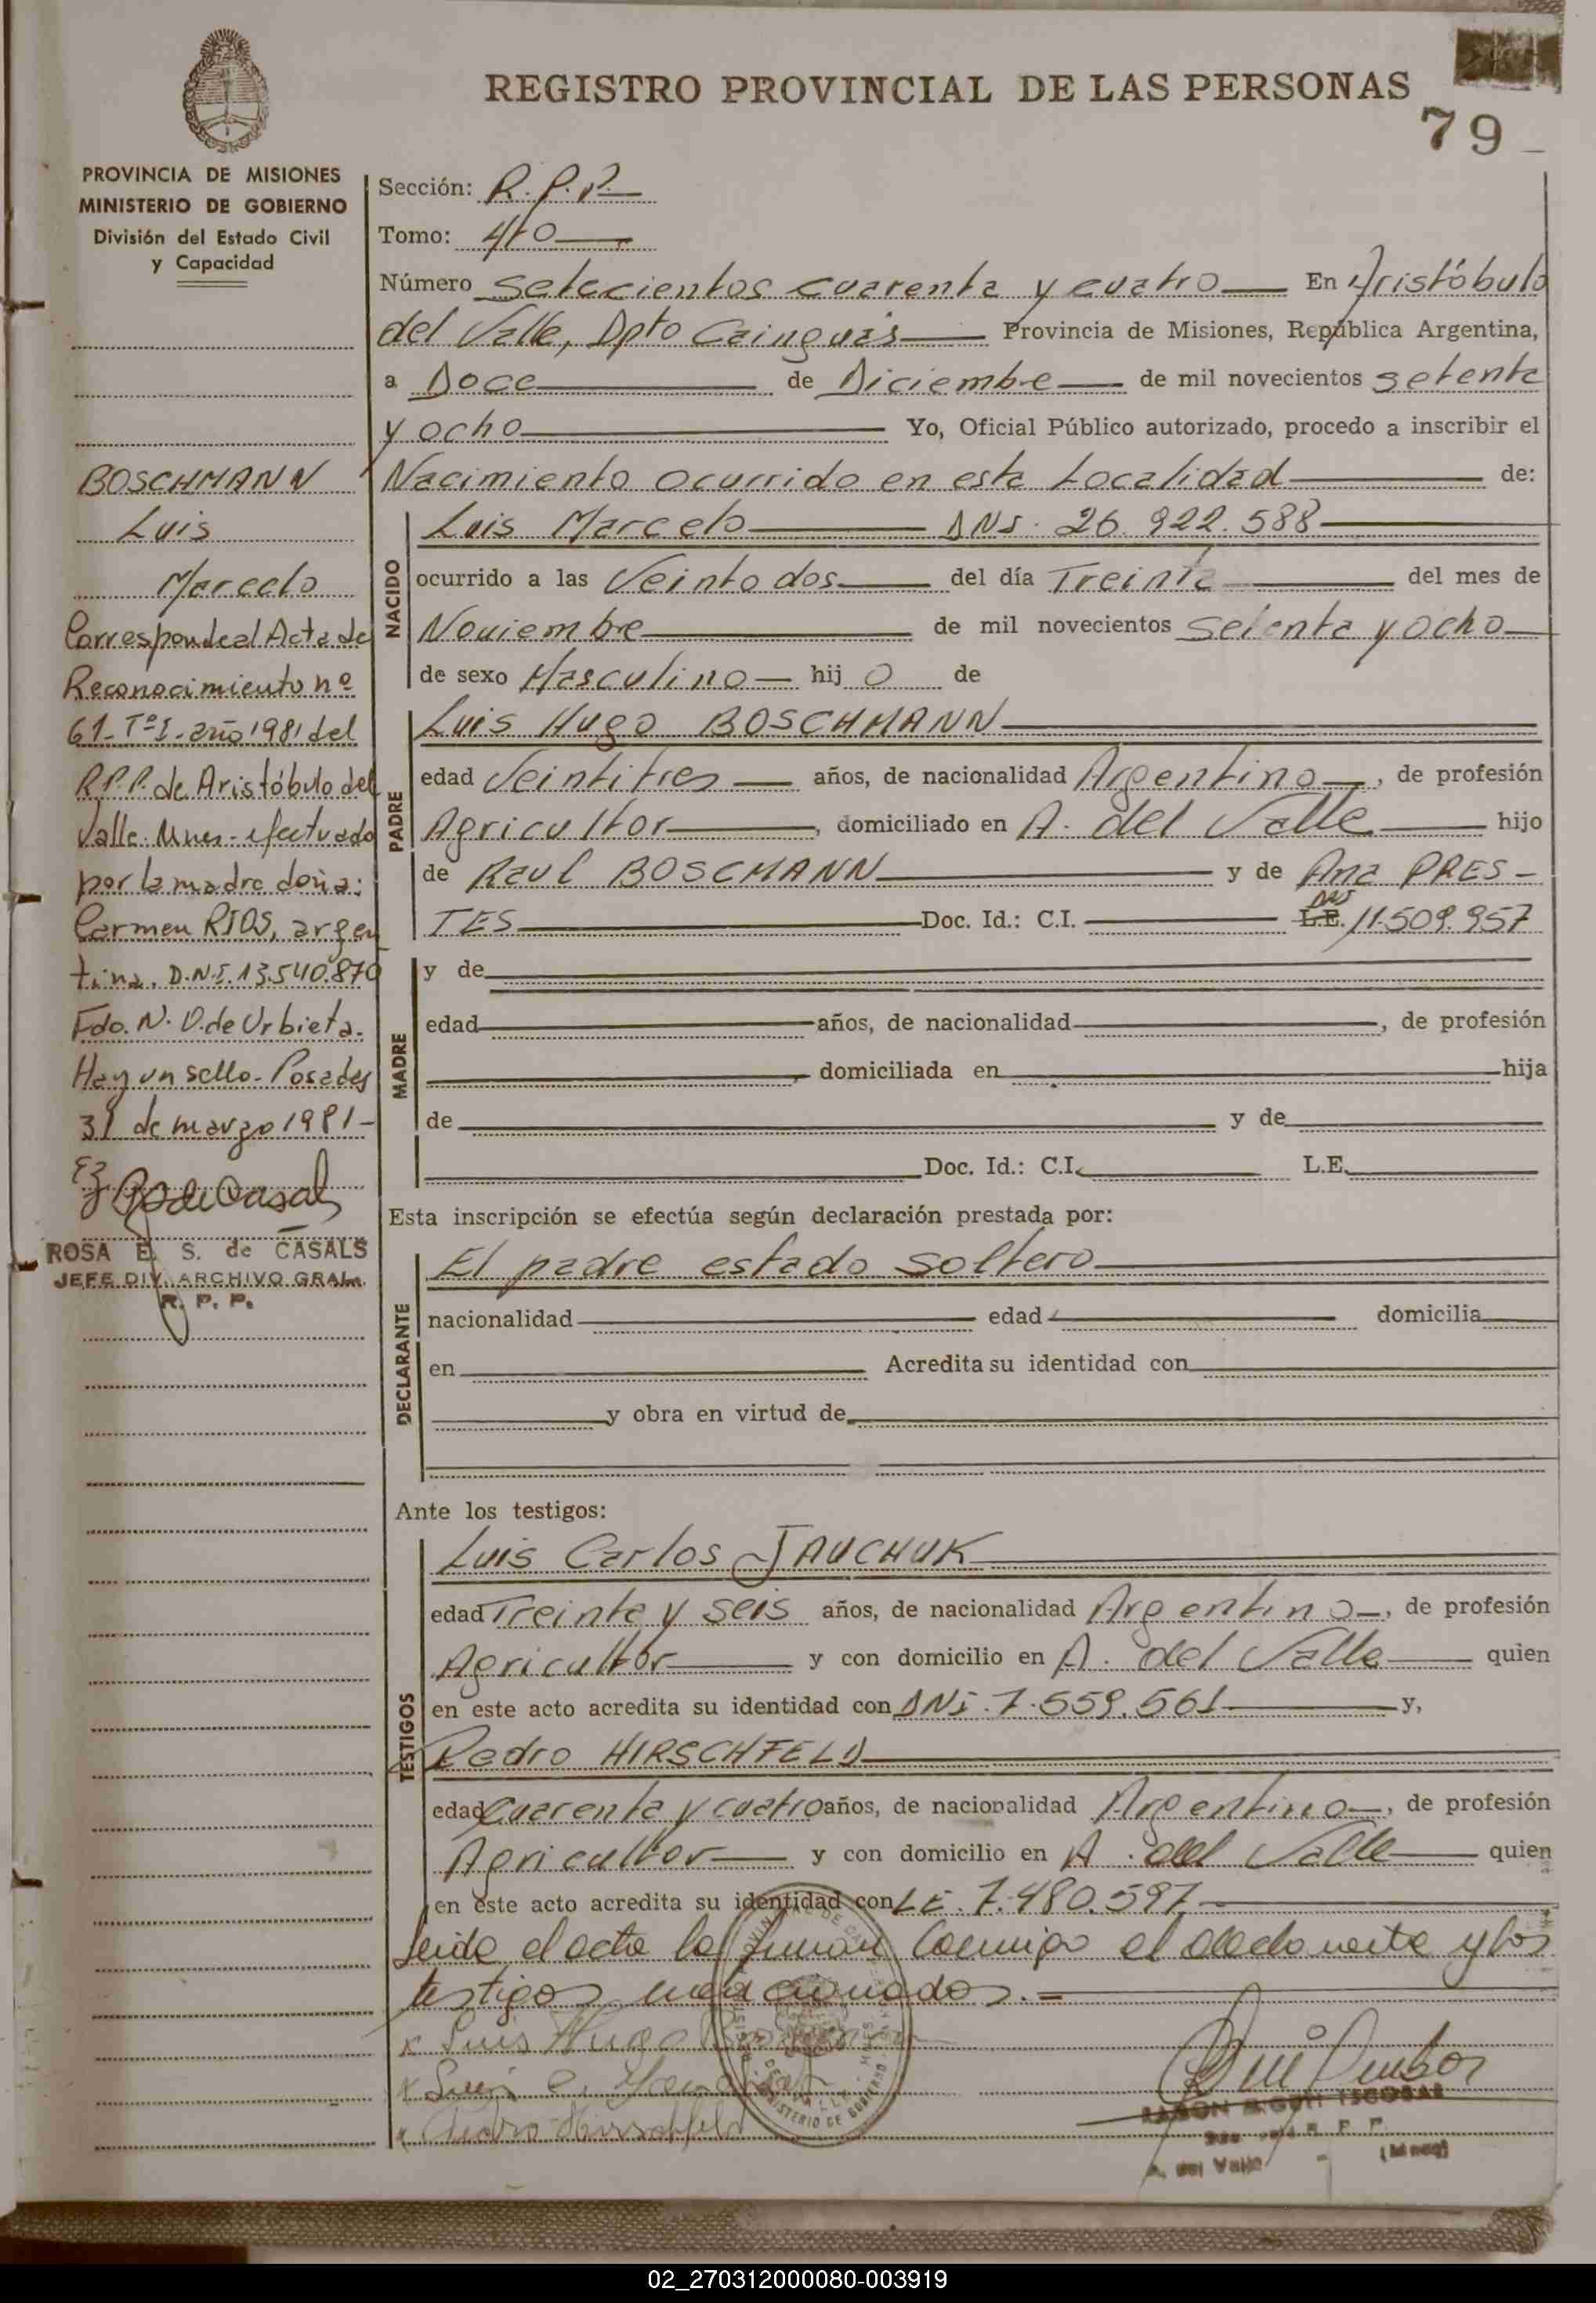 REGISTRO PROVINCIAL DE LAS PERSONAS
79
PROVINCIA DE MISIONES
MINISTERIO DE GOBIERNO
División del Estado Civil
y Capacidad
BOSCHMANN
Luis
Marcelo
Corresponde al Acta de
Reconocimiento nº
61- Tº I- año 1981 del
R.P.P. de Aristóbulo del
Valle. Mnes- efectuado
por la madre doña:
Carmen RIOS, argen
tina. D.N.I. 13.540.870
Fdo. N. V. de Urbieta.
Hay un sello- Posadas
31 de marzo 1981-
ROSA E. S. de CASALS
JEFE DIV. ARCHIVO GRAL.
R. P. P.
Sección: R. P. P.
Tomo: 4to
Número Setecientos cuarenta y cuatro En Aristóbulo
del Valle, Dpto Cainguás Provincia de Misiones, República Argentina,
a Doce de Diciembre de mil novecientos setenta
y ocho Yo, Oficial Público autorizado, procedo a inscribir el
Nacimiento ocurrido en esta Localidad de:
NACIDO
Luis Marcelo DNI. 26.922.588
ocurrido a las Veinte dos del día Treinta del mes de
Noviembre de mil novecientos Setenta y ocho
de sexo Masculino hij o de
PADRE
Luis Hugo BOSCHMANN
edad Veintitres años, de nacionalidad Argentino, de profesión
Agricultor, domiciliado en A. del Valle hijo
de Raul BOSCMANN y de Ana PRES-
TES Doc. Id.: C.I. L.E. DNI 11.509.957
MADRE
y de
edad años, de nacionalidad, de profesión
domiciliada en hija
de y de
Doc. Id.: C.I. L.E.
Esta inscripción se efectúa según declaración prestada por:
DECLARANTE
El padre estado soltero
nacionalidad edad domicilia
en Acredita su identidad con
y obra en virtud de
Ante los testigos:
TESTIGOS
Luis Carlos JAUCHUK
edad Treinta y seis años, de nacionalidad Argentino, de profesión
Agricultor y con domicilio en A. del Valle quien
en este acto acredita su identidad con DNI. 7.559.561 y,
Pedro HIRSCHFELD
edad Cuarenta y cuatro años, de nacionalidad Argentino, de profesión
Agricultor y con domicilio en A. del Valle quien
en este acto acredita su identidad con LE. 7.480.597
Leida el acta la firman conmigo el declarante y los
testigos mencionados.=
x Luis Hugo
x Luis C.
x Pedro Hirschfeld
ESCOBAR
A. del Valle (Mnes)
02_270312000080-003919